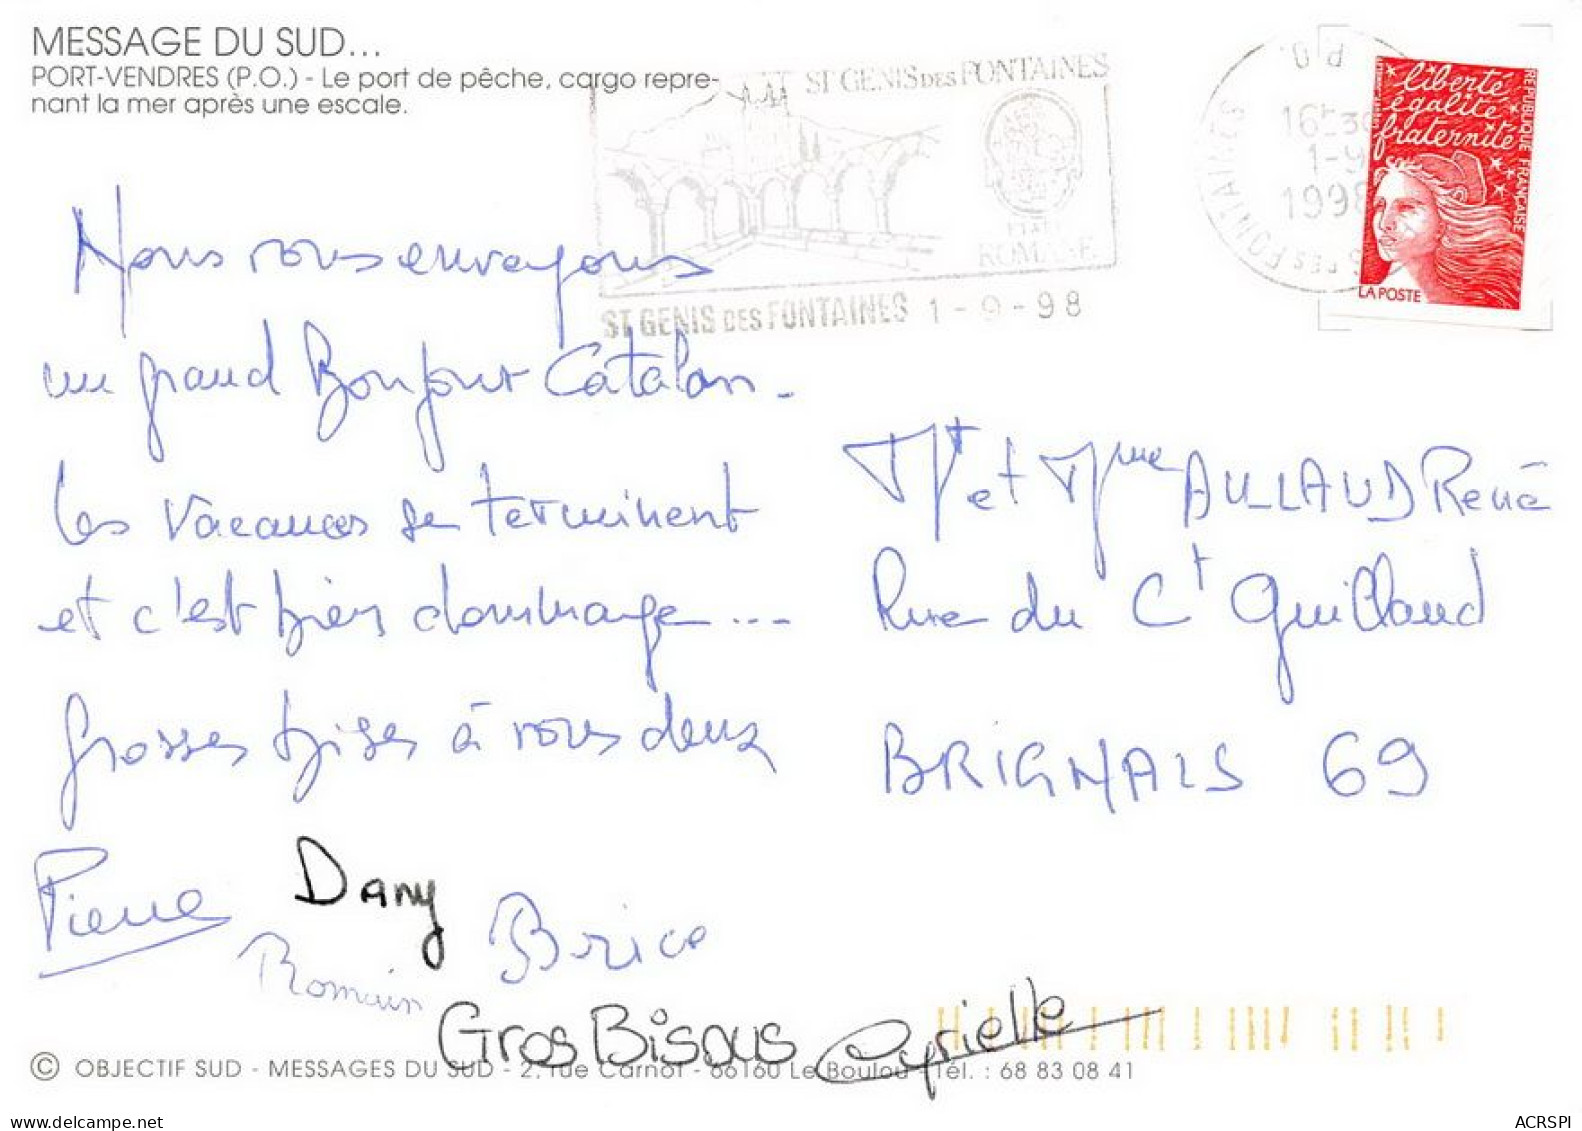 MESSAGE DU SUD...
PORT-VENDRES (P.O.) - Le port de pêche, cargo repre-
nant la mer après une escale.
ST GENIS DES FONTAINES
ROMANE
ST GENIS DES FONTAINES 1-9-98
16H30
1-9
1998
liberté
égalité
fraternité
REPUBLIQUE FRANÇAISE
LA POSTE
Nous vous envoyons
un grand Bonjour Catalan.
Les vacances se terminent
et c'est bien dommage...
Grosses bises à vous deux
Pierre Dany
Romain Brice
Gros Bisous Cyrielle
Mr et Mme AULLAUD René
Rue du Ct Guillaud
BRIGNAIS 69
© OBJECTIF SUD - MESSAGES DU SUD - 2, rue Carnot - 66160 Le Boulou - Tél. : 68 83 08 41
ACRSPI